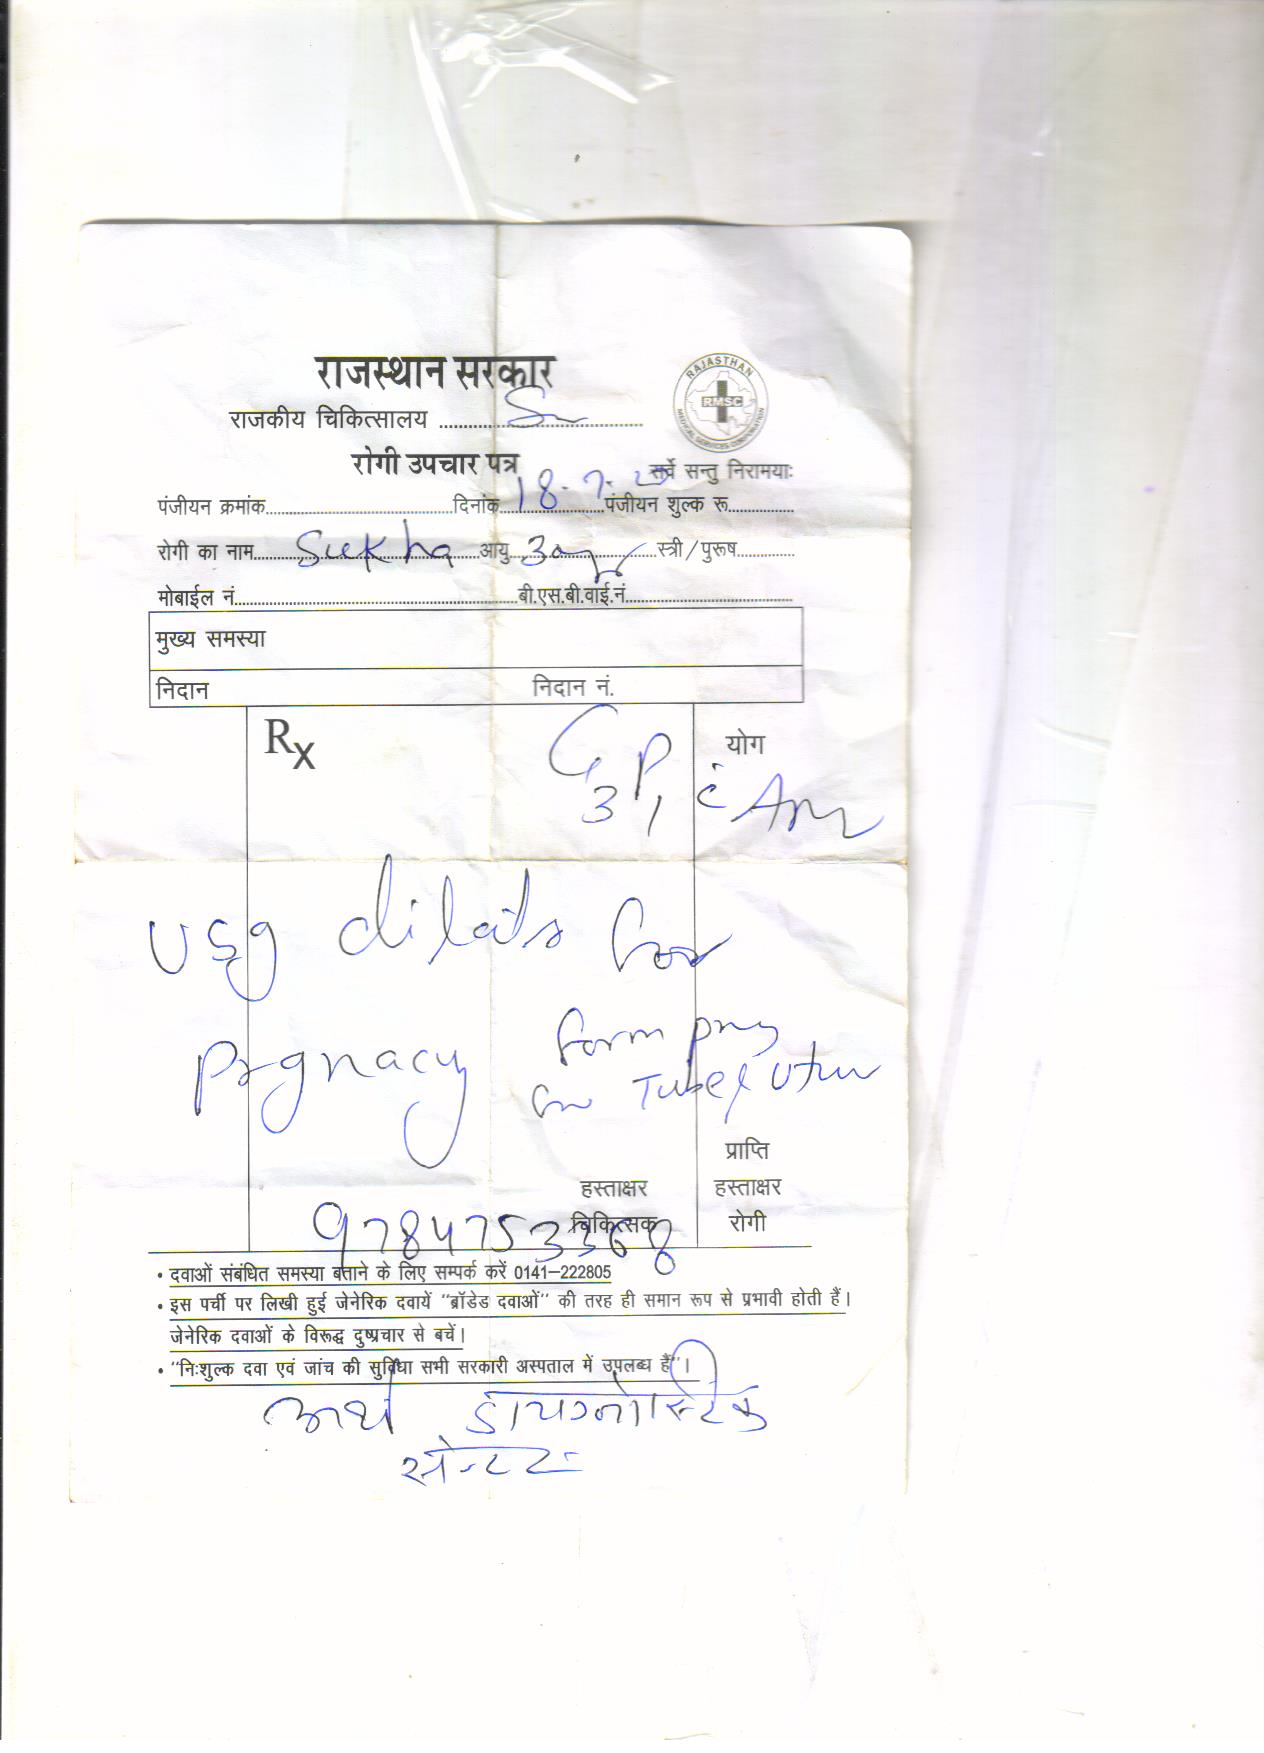 राजस्थान सरकार
RAJASTHAN
RMSC
MEDICAL SERVICES CORPORATION
राजकीय चिकित्सालय
रोगी उपचार पत्र
सर्वे सन्तु निरामयाः
पंजीयन क्रमांक दिनांक 18-7- पंजीयन शुल्क रू.
रोगी का नाम Sukha आयु 30y स्त्री/पुरूष
मोबाईल नं. बी.एस.बी.वाई.नं.
मुख्य समस्या
निदान निदान नं.
Rx योग
G3P1 c
USG for
Prgnacy form
Tube/
प्राप्ति
हस्ताक्षर हस्ताक्षर
चिकित्सक रोगी
9784753368
• दवाओं संबंधित समस्या बताने के लिए सम्पर्क करें 0141–222805
• इस पर्ची पर लिखी हुई जेनेरिक दवायें "ब्रॉडेड दवाओं" की तरह ही समान रूप से प्रभावी होती हैं।
जेनेरिक दवाओं के विरूद्ध दुष्प्रचार से बचें।
• "निःशुल्क दवा एवं जांच की सुविधा सभी सरकारी अस्पताल में उपलब्ध हैं"।
अर्थ डायग्नोस्टिक
सेन्टर